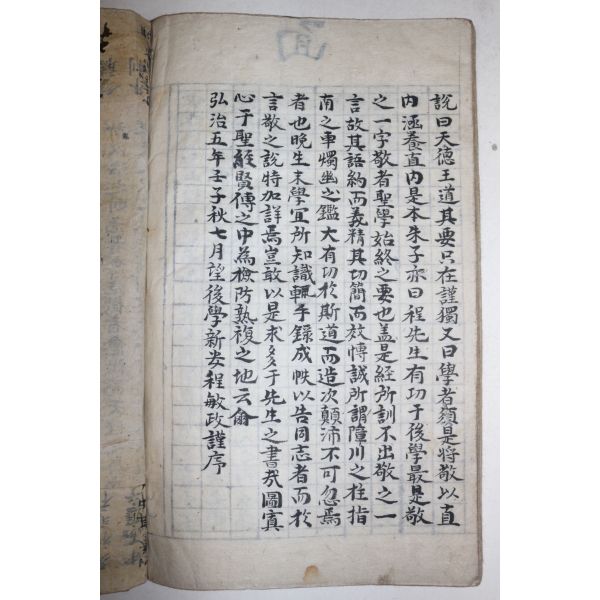 說曰天德王道其要只在謹獨又曰學者須是將敬以直
內涵養直內是本朱子亦曰程先生有功于後學最是敬
之一字敬者聖學始終之要也盖是經所訓不出敬之一
言故其語約而義精其切簡而效愽誠所謂障川之柱指
南之車燭幽之鑑大有功於斯道而造次顛沛不可忽焉
者也晚生末學冝所知識輒手錄成帙以告同志者而於
言敬之說特加詳焉豈敢以是求多于先生之書㦲圖寘
心于聖經賢傳之中為檢防熟複之地云爾
弘治五年壬子秋七月望後學新安程敏政謹序